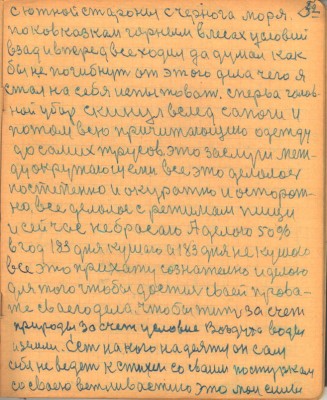 с ютной староны с чернога моря. 52
по ковкозкам гарным в лесах условий
взад и вперед все ходил да думал как
бы не погибнуть от этого дела чего я
стал на себя испытоват. сперва голов-
ной убор скинул вслед сапоги и
потом всю причитающию одежду
до самих трусов. это заслуги меж-
ду окружающими все это делалос
постепенно и окуратно и осторож-
но. все делалос с режимам пищи
и сейчас не бросаю. Я делаю 50%
в год 183 дня кушаю а 183 дня не кушаю
все это прихати сознателно и делаю
для того чтобы достич своей прова-
те сваего дела. чтобы жить за счет
природы за счет условие Воздуха воды
и земли. Ест на кого надеятся он сам
себя не ведет к стихии со своим поступкам
со своего вежливастию это мои силы